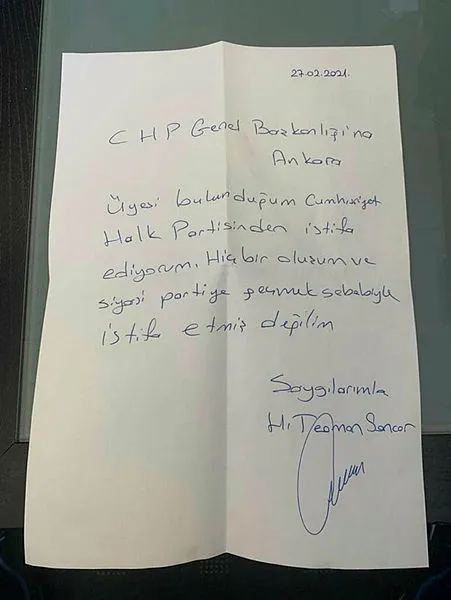 27.02.2021.
CHP Genel Başkanlığı'na
Ankara
Üyesi bulunduğum Cumhuriyet
Halk Partisinden istifa
ediyorum. Hiçbir oluşum ve
siyasi partiye geçmek sebebiyle
istifa etmiş değilim
Saygılarımla
H. Teoman Sancar